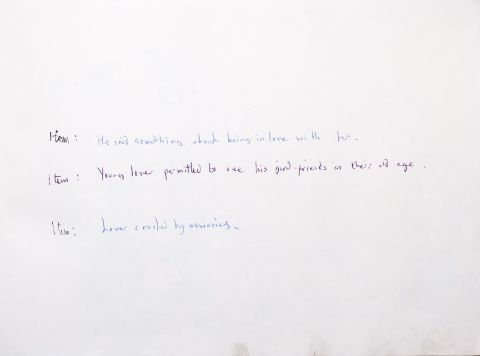 Item: He said something about being in love with her.
Item: Young lover permitted to see his girl-friends in their old age.
Item: Lover crushed by memories.